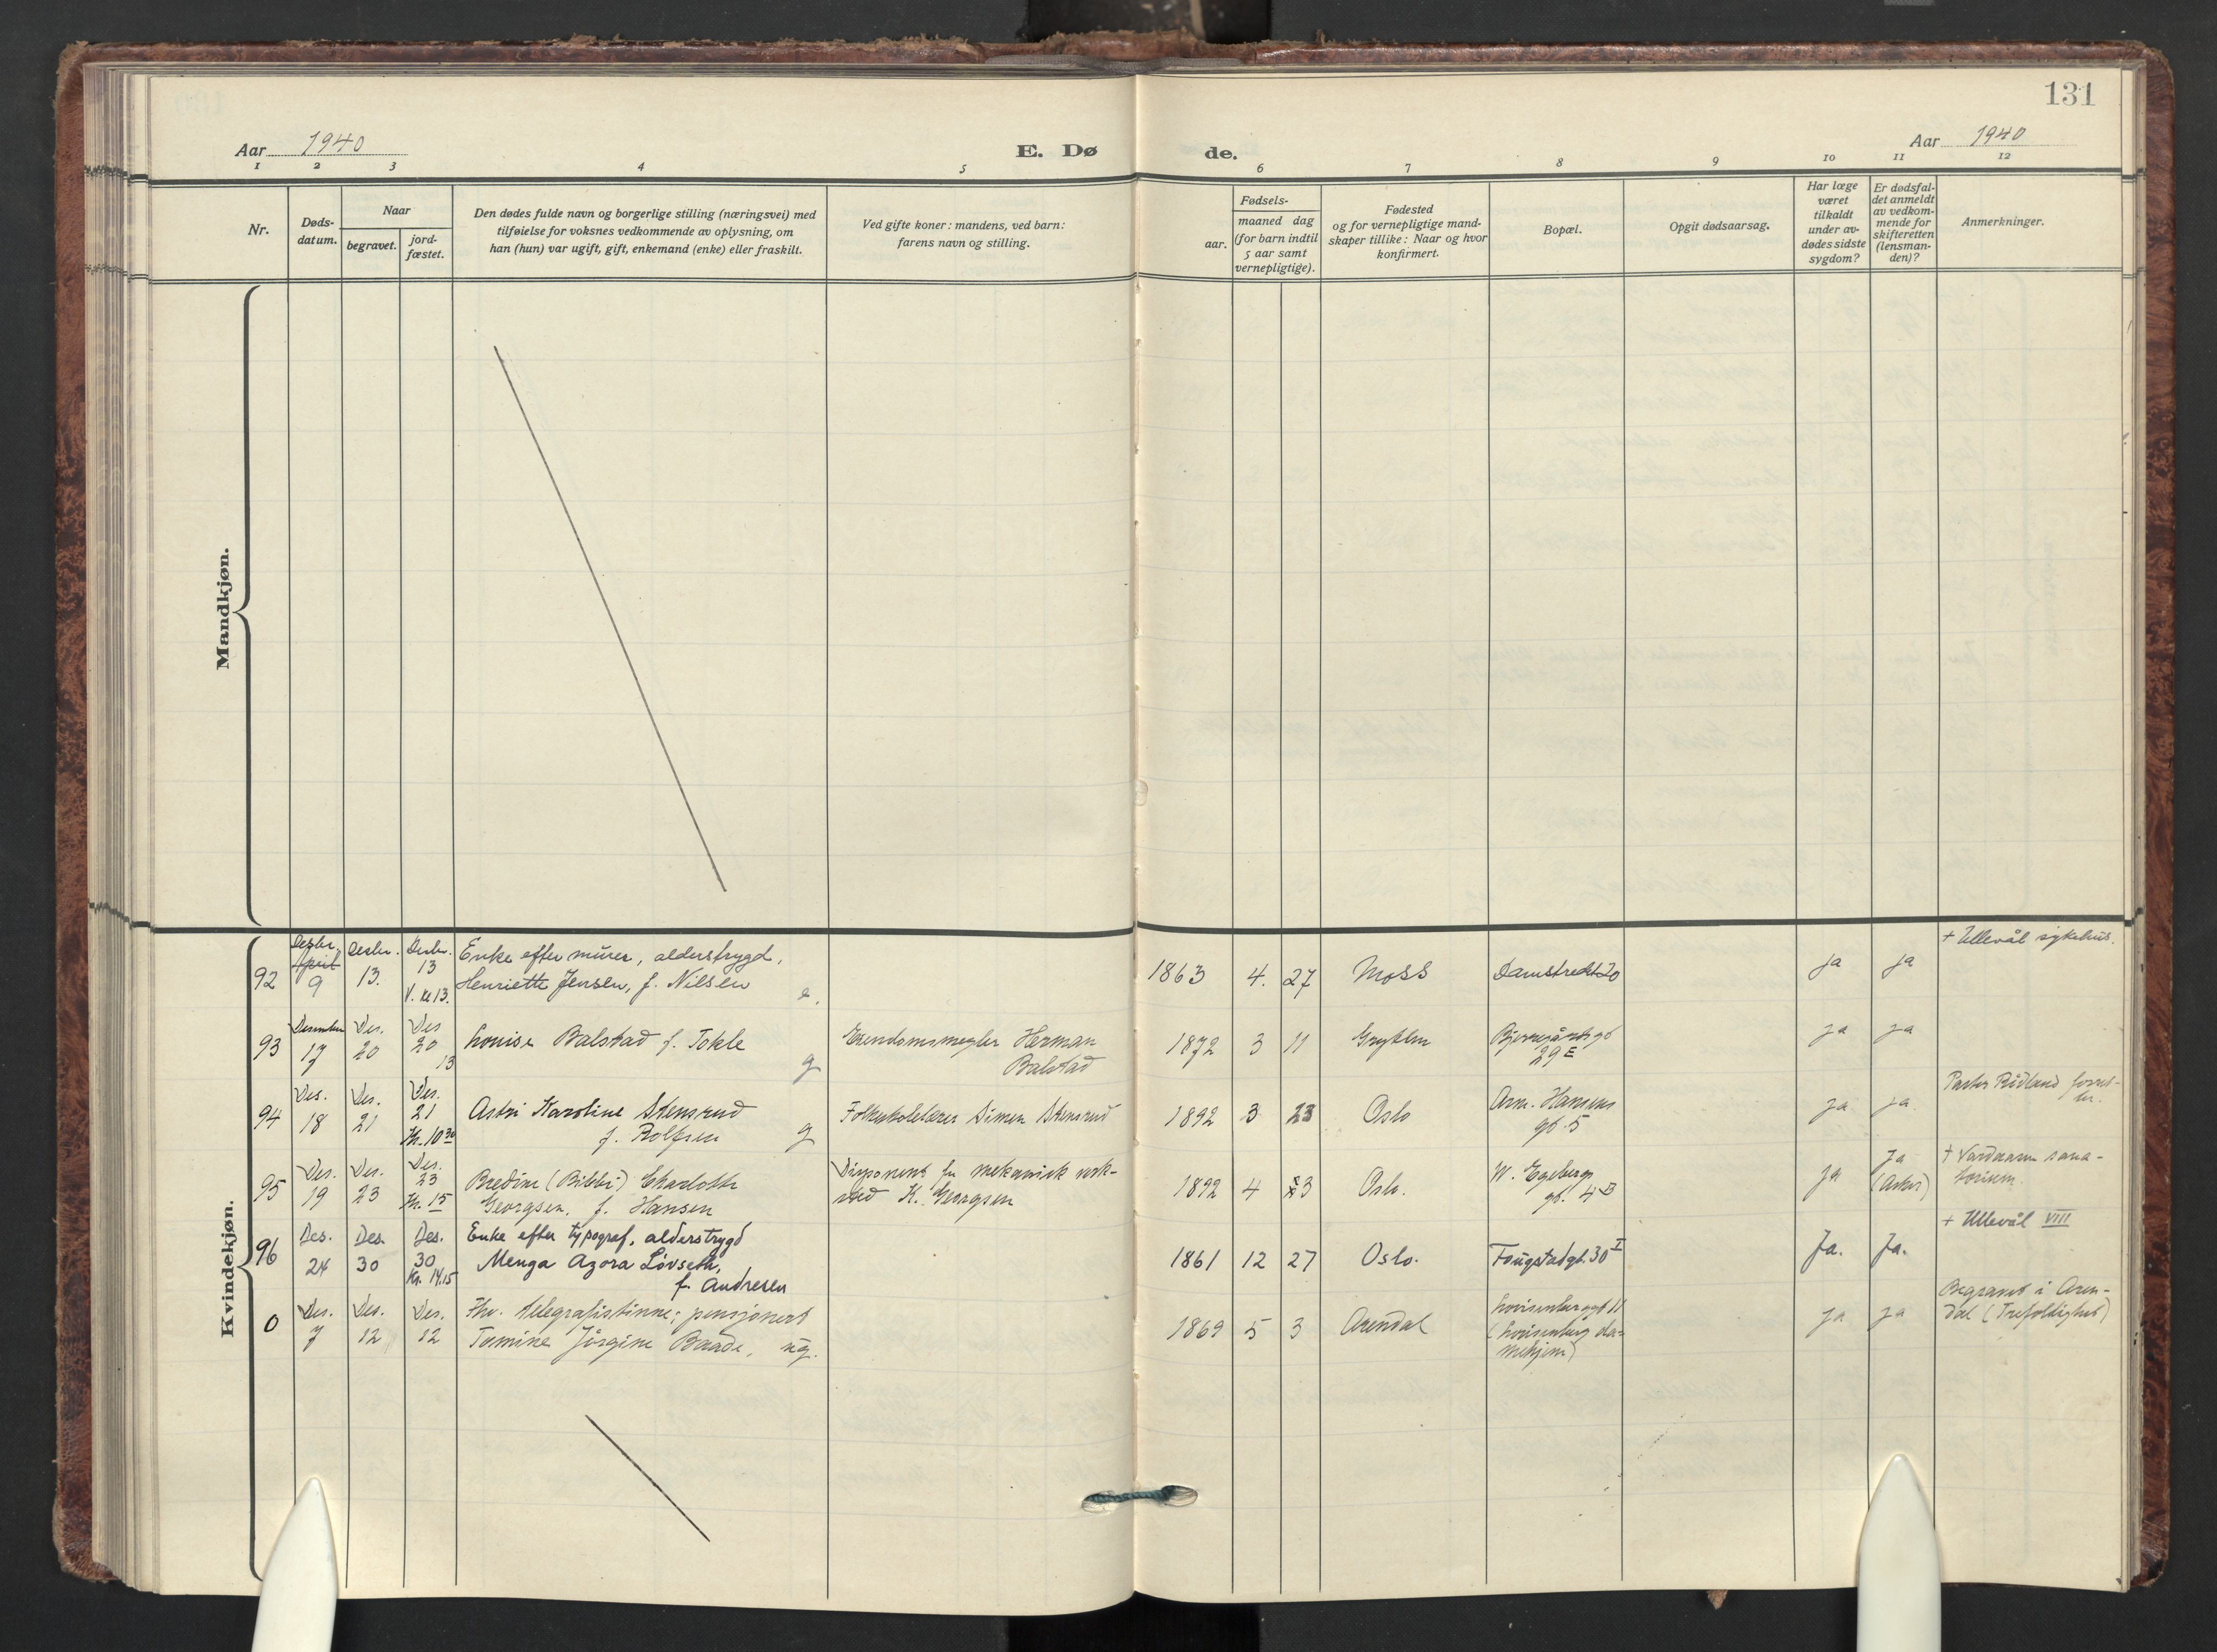 131
Aar 1940
E. Dø
de.
Aar 1940
1 2 3 4 5 6 7 8 9 10 11 12
Nr.
Døds-
datum.
Naar
begravet.
jord-
fæstet.
Den dødes fulde navn og borgerlige stilling (næringsvei) med
tilføielse for voksnes vedkommende av oplysning, om
han (hun) var ugift, gift, enkemand (enke) eller fraskilt.
Ved gifte koner: mandens, ved barn:
farens navn og stilling.
Fødsels-
aar.
maaned dag
(for barn indtil
5 aar samt
vernepligtige).
Fødested
og for vernepligtige mand-
skaper tillike: Naar og hvor
konfirmert.
Bopæl.
Opgit dødsaarsag.
Har læge
været
tilkaldt
under av-
dødes sidste
sygdom?
Er dødsfal-
det anmeldt
av vedkom-
mende for
skifteretten
(lensman-
den)?
Anmerkninger.
Mandkjøn.
Kvindekjøn.
92
Desbr.
April
9
Desbr.
13.
Desbr.
13
V. kl 13.
Enke efter mürer, alderstrygd,
Henriette Jensen, f. Nilsen e.
1863 4. 27 Moss Damstredet 20 ja ja + Ullevål sykehus.
93
Desember
17
Des.
20
Des
20
13
Louise Balstad f. Tokle g
Eiendomsmegler Herman
Balstad
1872 3 11 Grytten
Bjerregårdsgt
29 E
ja ja
94
Des.
18
Des.
21
Des.
21
Kl. 10 30
Astri Karoline Stensrud
f. Rolfsen g
Folkeskolelærer Simen Stensrud
1892 3 23 Oslo
Arm. Hansens
gt. 5
ja ja
Pastor Ridland forret-
ter.
95
Des.
19
Des.
23
Des.
23
Kl. 15
Bredine (Bibbi) Charlotte
Georgsen, f. Hansen
Disponent for mekanisk verk-
sted K. Georgsen
1892 4 3 Oslo.
W. Egebergs
gt. 4 B
ja
Ja
(Asker)
+ Vardaasen sana-
torium.
96
Des.
24
Des.
30
Des.
30
Kl. 14.15
Enke efter typograf, alderstrygd
Menga Azora Løvseth,
f. Andresen
1861 12 27 Oslo. Fougstadgt. 30 I Ja. Ja. + Ullevål VIII
0
Des.
7
Des.
12
Des.
12
Fhv. telegrafistinne, pensjonert
Tomine Jørgine Baade, ug.
1869 5 3 Arendal
Lovisenberggt 11
(Lovisenberg da-
mehjem)
ja ja
Begravet i Aren-
dal (Trefoldighet)